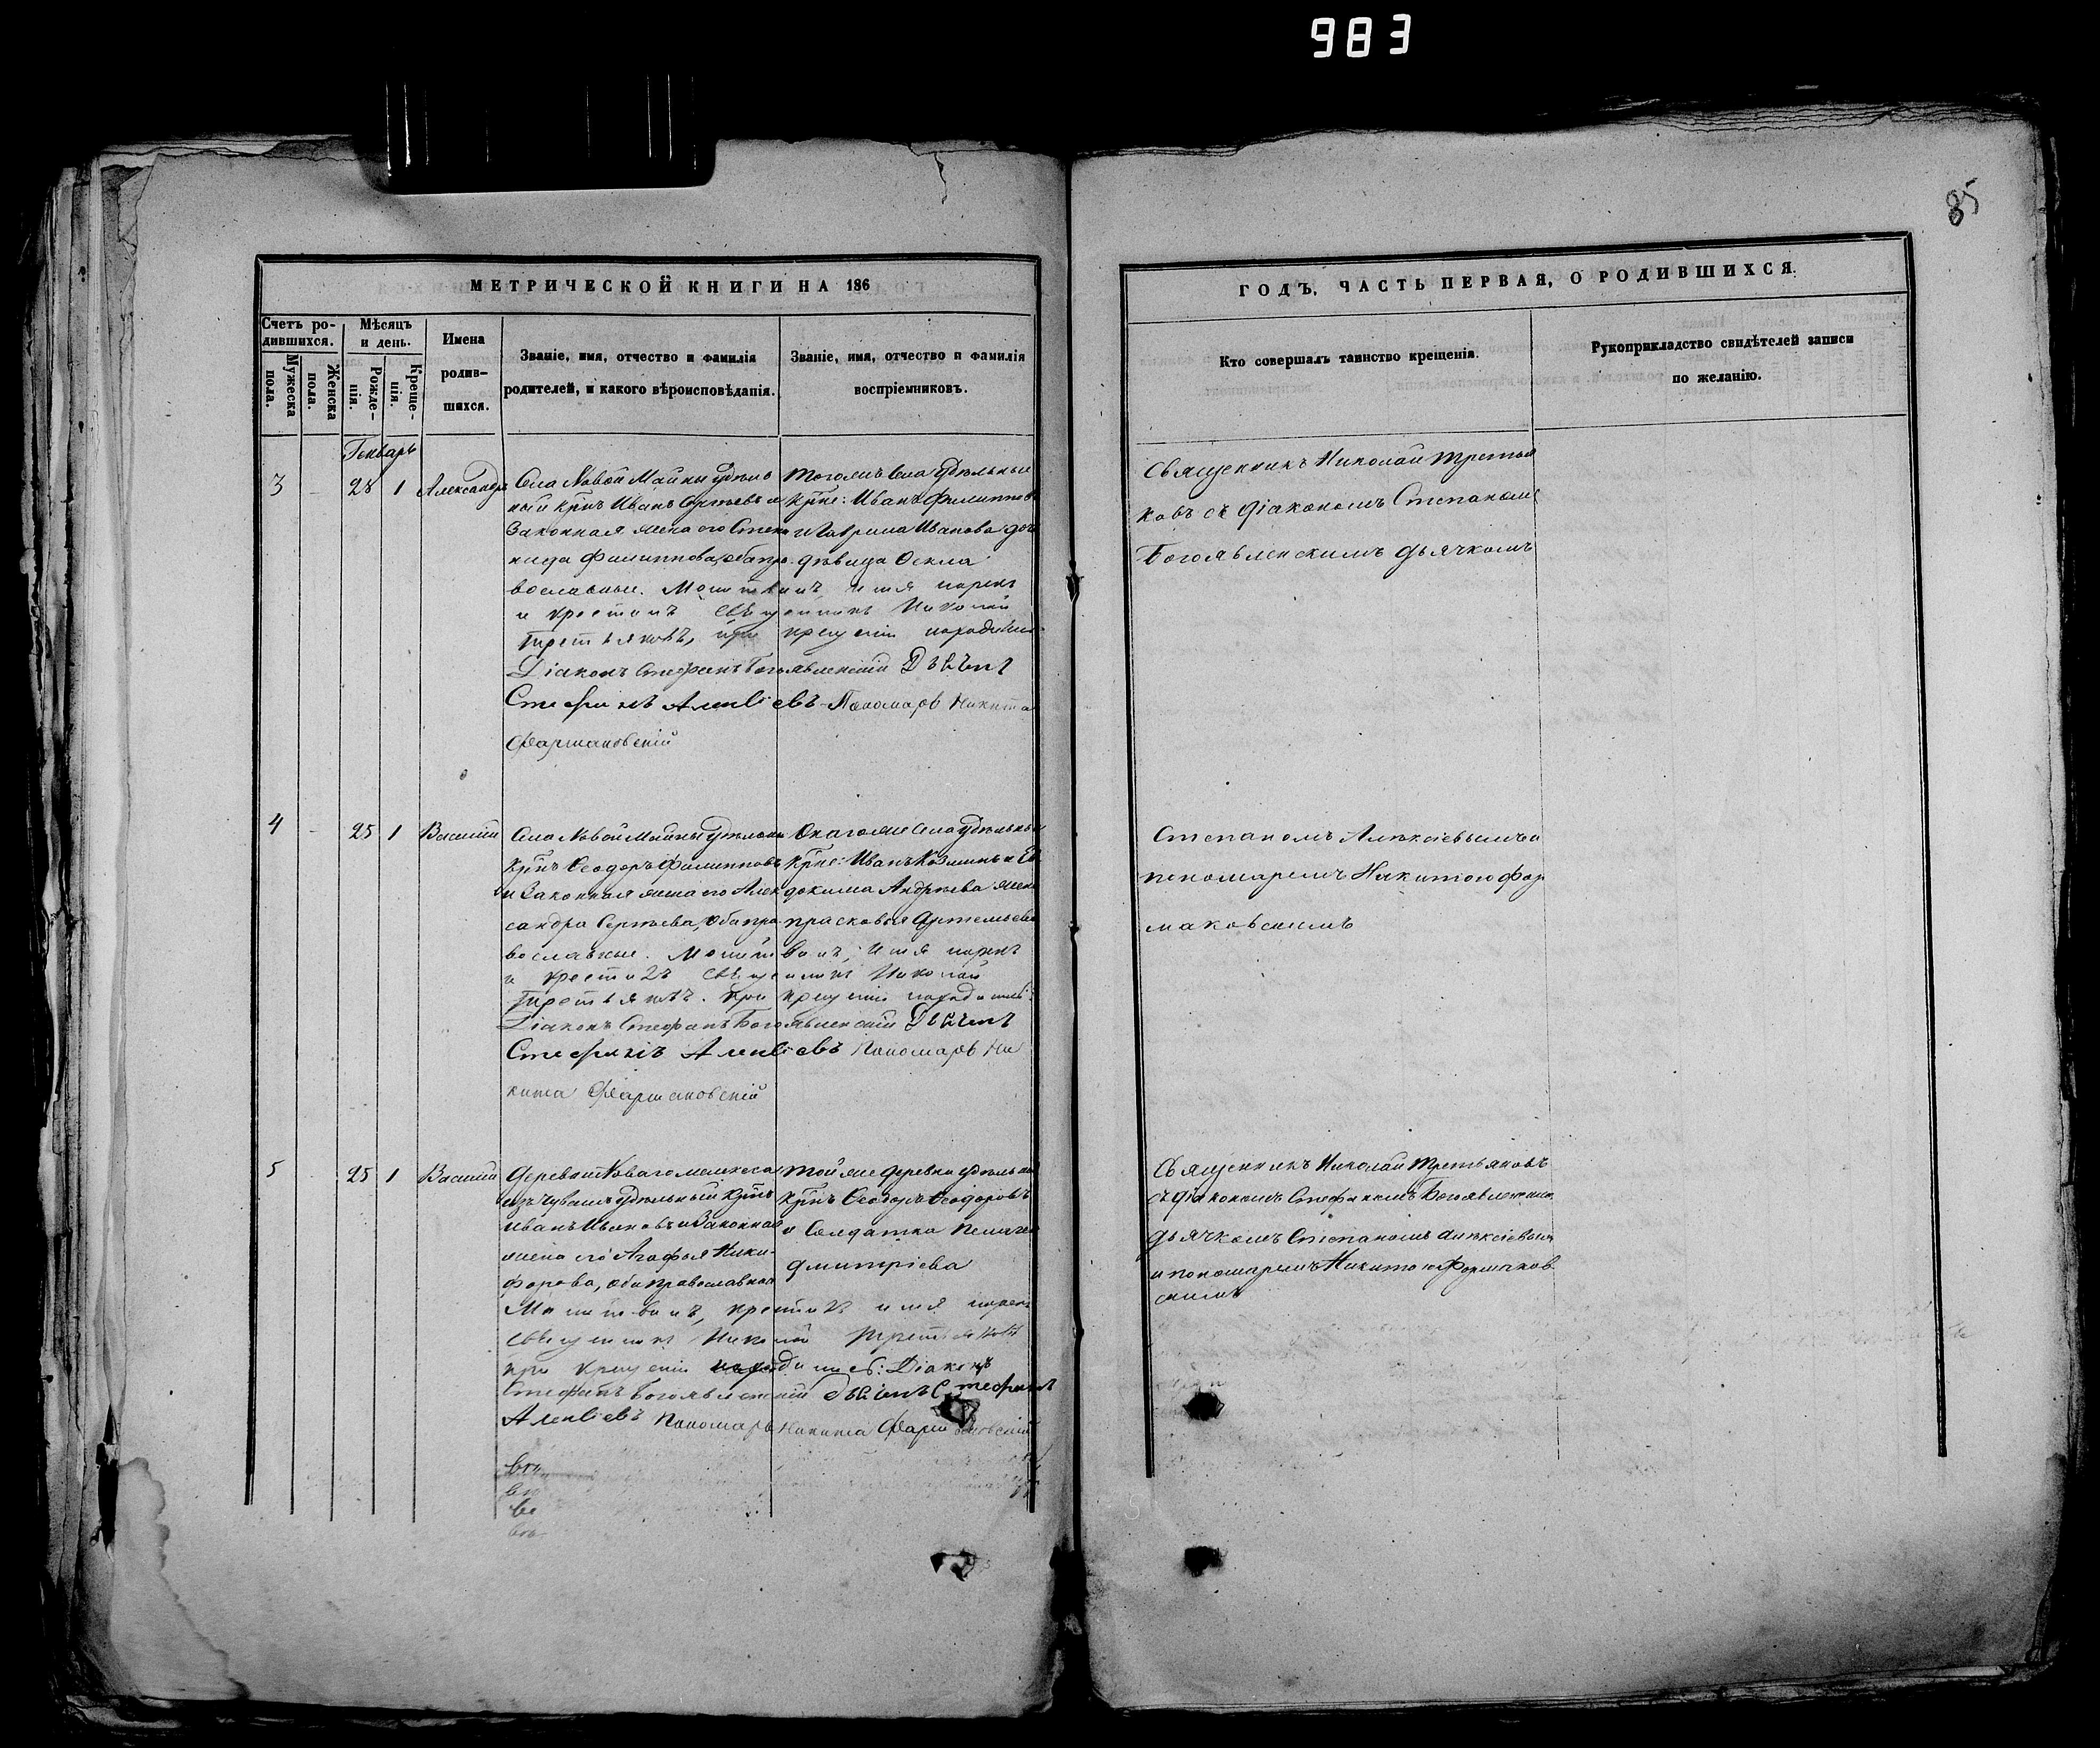 983
85
МЕТРИЧЕСКОЙ КНИГИ НА 186
Счетъ ро-
дившихся.
Мужеска
пола.
Женска
пола.
Мѣсяцъ
и день.
Рожде-
нія.
Креще-
нія.
Имена
родив-
шихся.
Званіе, имя, отчество и фамилія
родителей, и какого вѣроисповѣданія.
Званіе, имя, отчество и фамилія
воспріемниковъ.
Генварь
3 - 28 1 Александръ
Села Новой Майны удѣль
ный крнъ Иванъ Сергѣевъ и
Законная жена его Степа
нида Филиппова, оба пра
вославные. Молитвилъ, имя нарекъ
и крестилъ священникъ Николай
Третьяковъ, при крещеніи находились
Діаконъ Стефанъ Богоявленскій Дьячекъ
Стефанъ Алексіевъ Пономарь Никита
Фармаковскій
Тогожъ Села удѣльные
крне: Иванъ Филиппов
и Гаврила Иванова доч
дѣвица Ѳекла
4 - 25 1 Василій
Села Новой Майны удѣльны
крнъ Ѳеодоръ Филипповъ
и Законная жена его Алек
сандра Сергѣева, оба пра
вославные. Молитвилъ, имя нарекъ
и крестилъ священникъ Николай
Третьяковъ. при крещеніи находились:
Діаконъ Стефанъ Богоявленскій Дьячекъ
Стефанъ Алексіевъ Пономарь Ни
кита Фармаковскій
Онагоже Села удѣльны
крне: Иванъ Козминъ и Ев
докима Андрѣева жена
Прасковья Артемьева
5 - 25 1 Василій
Деревни Новаго Мелекеса
изъ Чувашъ удѣльный крнъ
Иванъ Ивановъ и Законная
жена его Агафья Ники-
форова, оба православные
Молитвилъ, крестилъ имя нарекъ
священникъ Николай Третьяковъ
при крещеніи находились: Діаконъ
Стефанъ Богоявленскій дьячекъ Стефанъ
Алексіевъ Пономарь Никита Фармаковскій
Той же деревни удѣльный
крнъ Ѳеодоръ Ѳеодоровъ
и Солдатка Пелагея
Дмитріева
ГОДЪ, ЧАСТЬ ПЕРВАЯ, О РОДИВШИХСЯ.
Кто совершалъ таинство крещенія.
Рукоприкладство свидѣтелей записи
по желанію.
Священникъ Николай Третья
ковъ съ діакономъ Степаномъ
Богоявленскимъ дьячкомъ
Степаномъ Алексіевымъ и
пономаремъ Никитою Фар
маковскимъ
Священникъ Николай Третьяковъ
съ діакономъ Стефаномъ Богоявленским
дьячкомъ Степаномъ Алексіевымъ
и пономаремъ Никитою Формаков
скимъ